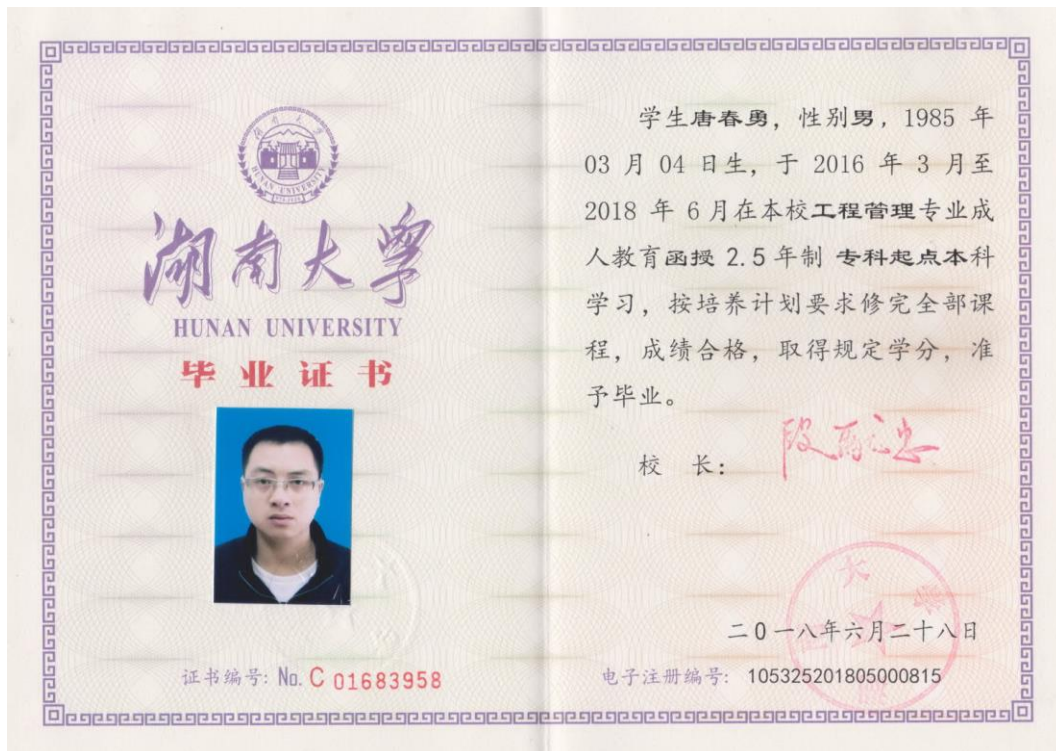 湖南大学
HUNAN UNIVERSITY
湖南大学
HUNAN UNIVERSITY
毕业证书
证书编号: No. C 01683958
学生唐春勇，性别男，1985 年
03 月 04 日生，于 2016 年 3 月至
2018 年 6 月在本校工程管理专业成
人教育函授 2.5 年制 专科起点本科
学习，按培养计划要求修完全部课
程，成绩合格，取得规定学分，准
予毕业。
校 长:
二0一八年六月二十八日
电子注册编号: 105325201805000815